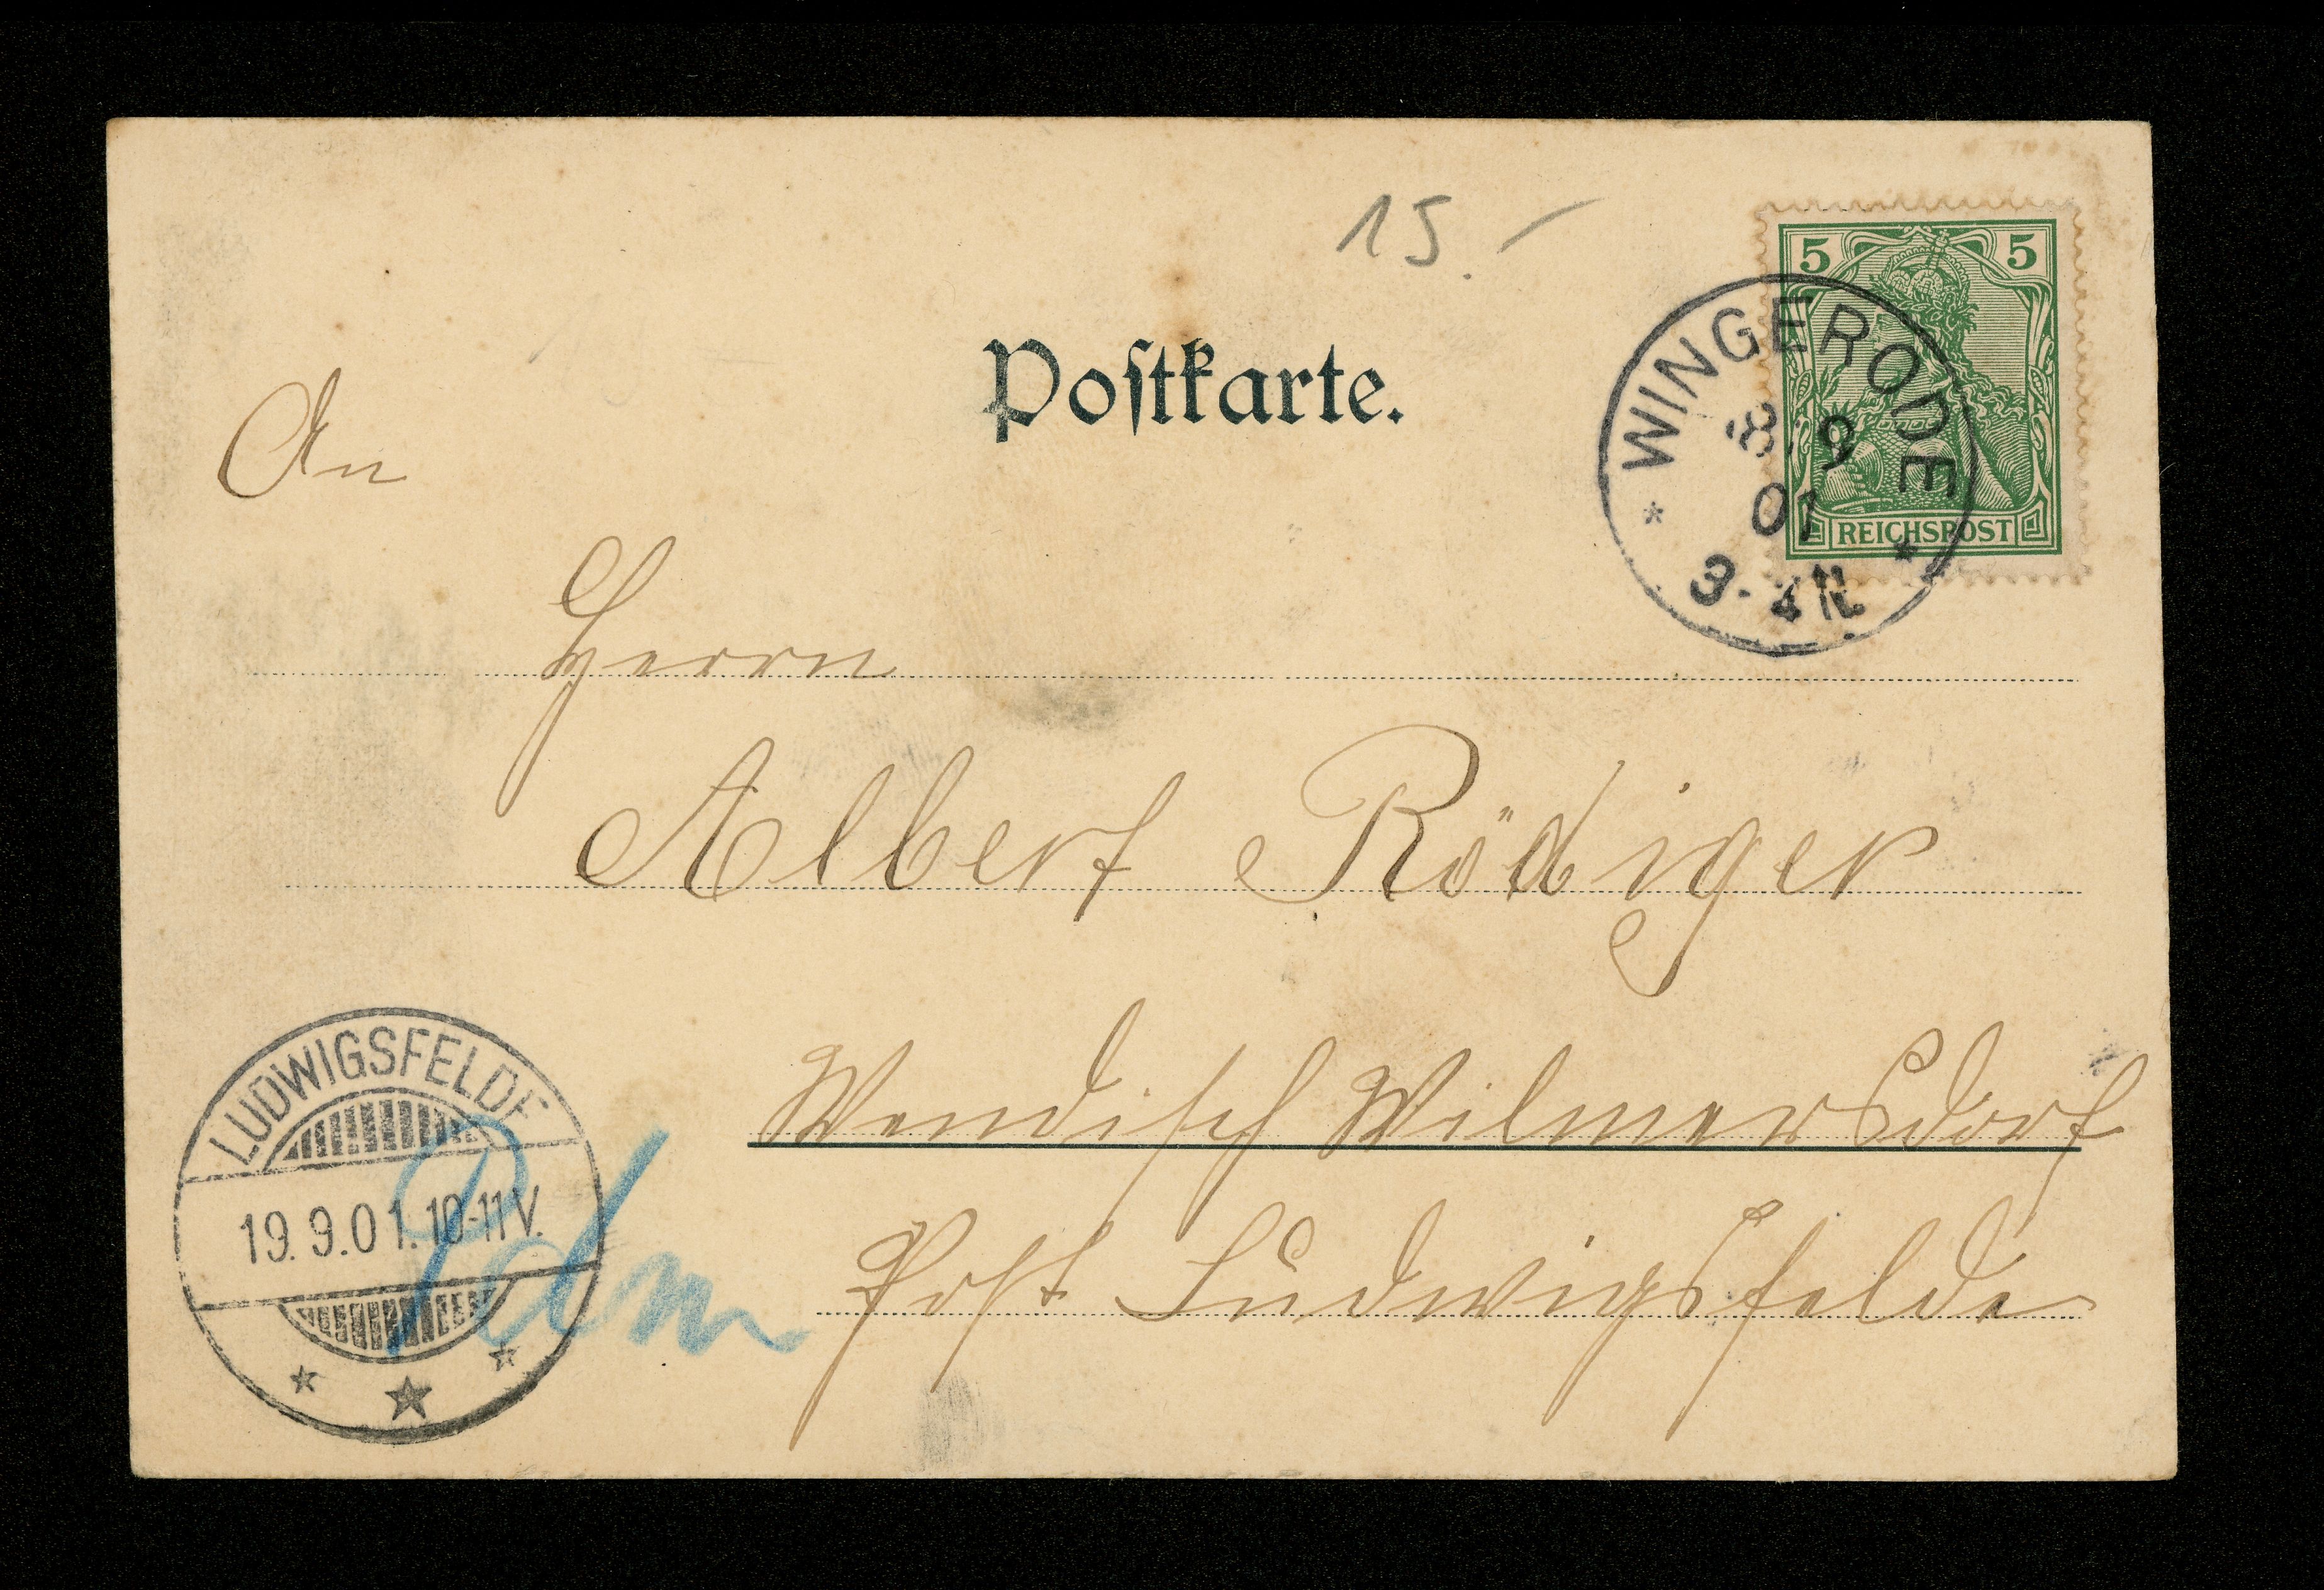 15.-
5 5
REICHSPOST
WINGERODE
8.9
01
3-4N.
Postkarte.
An
Herrn
Albert Rödiger
Wendisch Wilmersdorf
Post Ludwigsfelde
LUDWIGSFELDE
19.9.01.10-11V.